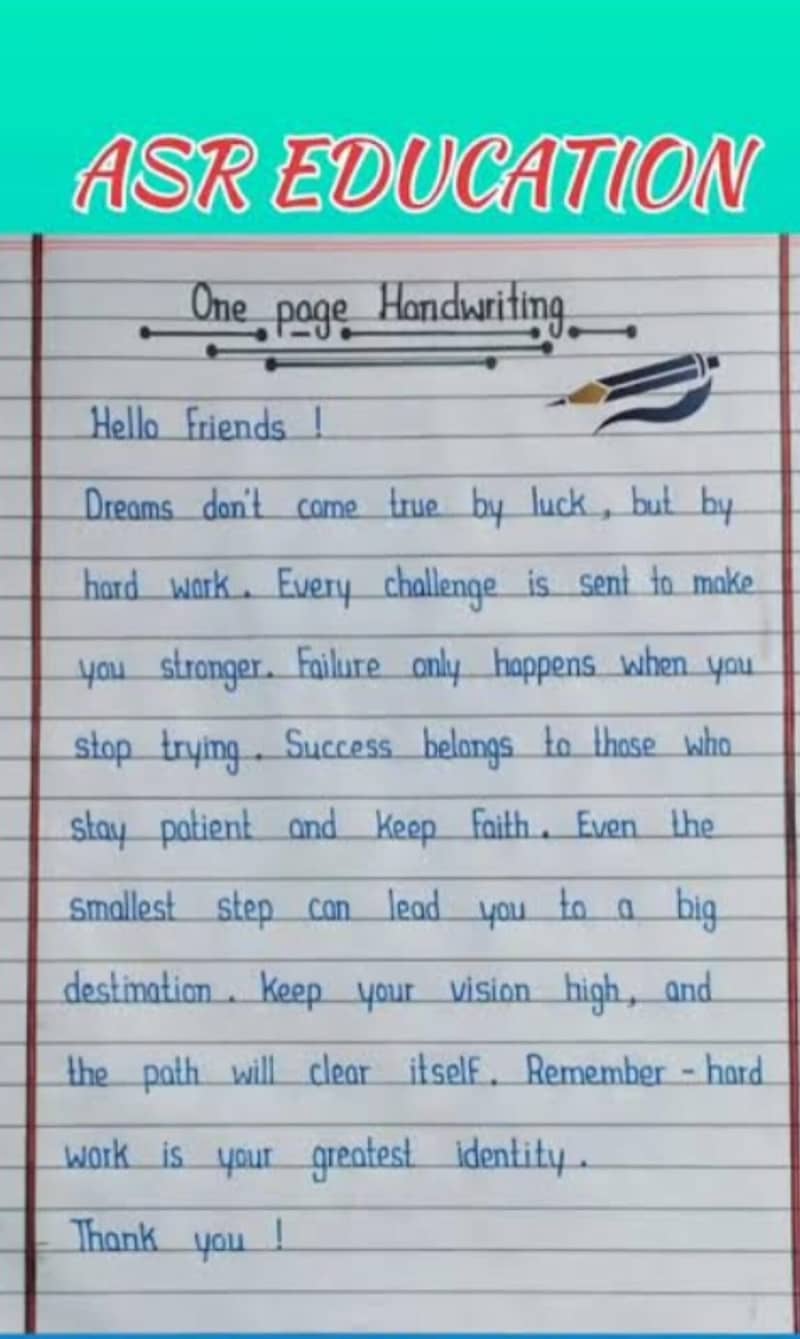 ASR EDUCATION
One page Handwriting
Hello Friends !
Dreams don't come true by luck, but by
hard work. Every challenge is sent to make
you stronger. Failure only happens when you
stop trying. Success belongs to those who
stay patient and keep faith. Even the
smallest step can lead you to a big
destination. Keep your vision high, and
the path will clear itself. Remember - hard
work is your greatest identity.
Thank you !